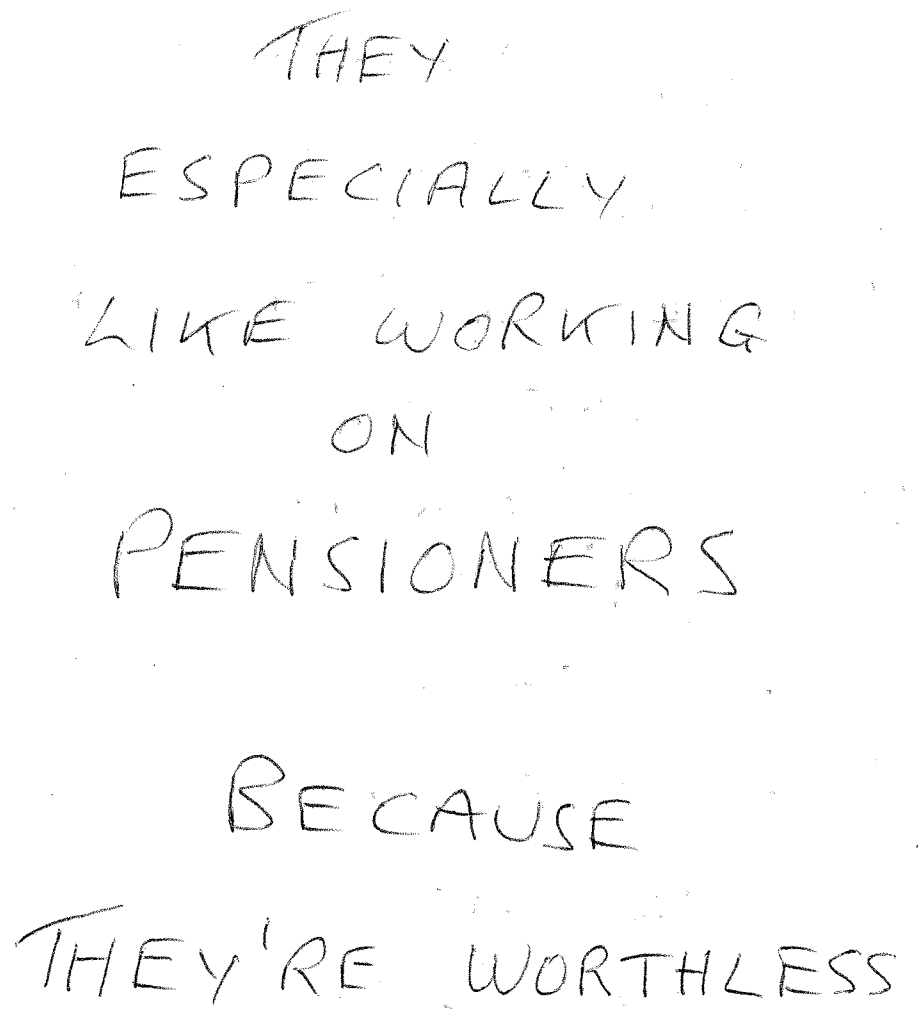 THEY
ESPECIALLY
LIKE WORKING
ON
PENSIONERS
BECAUSE
THEY'RE WORTHLESS